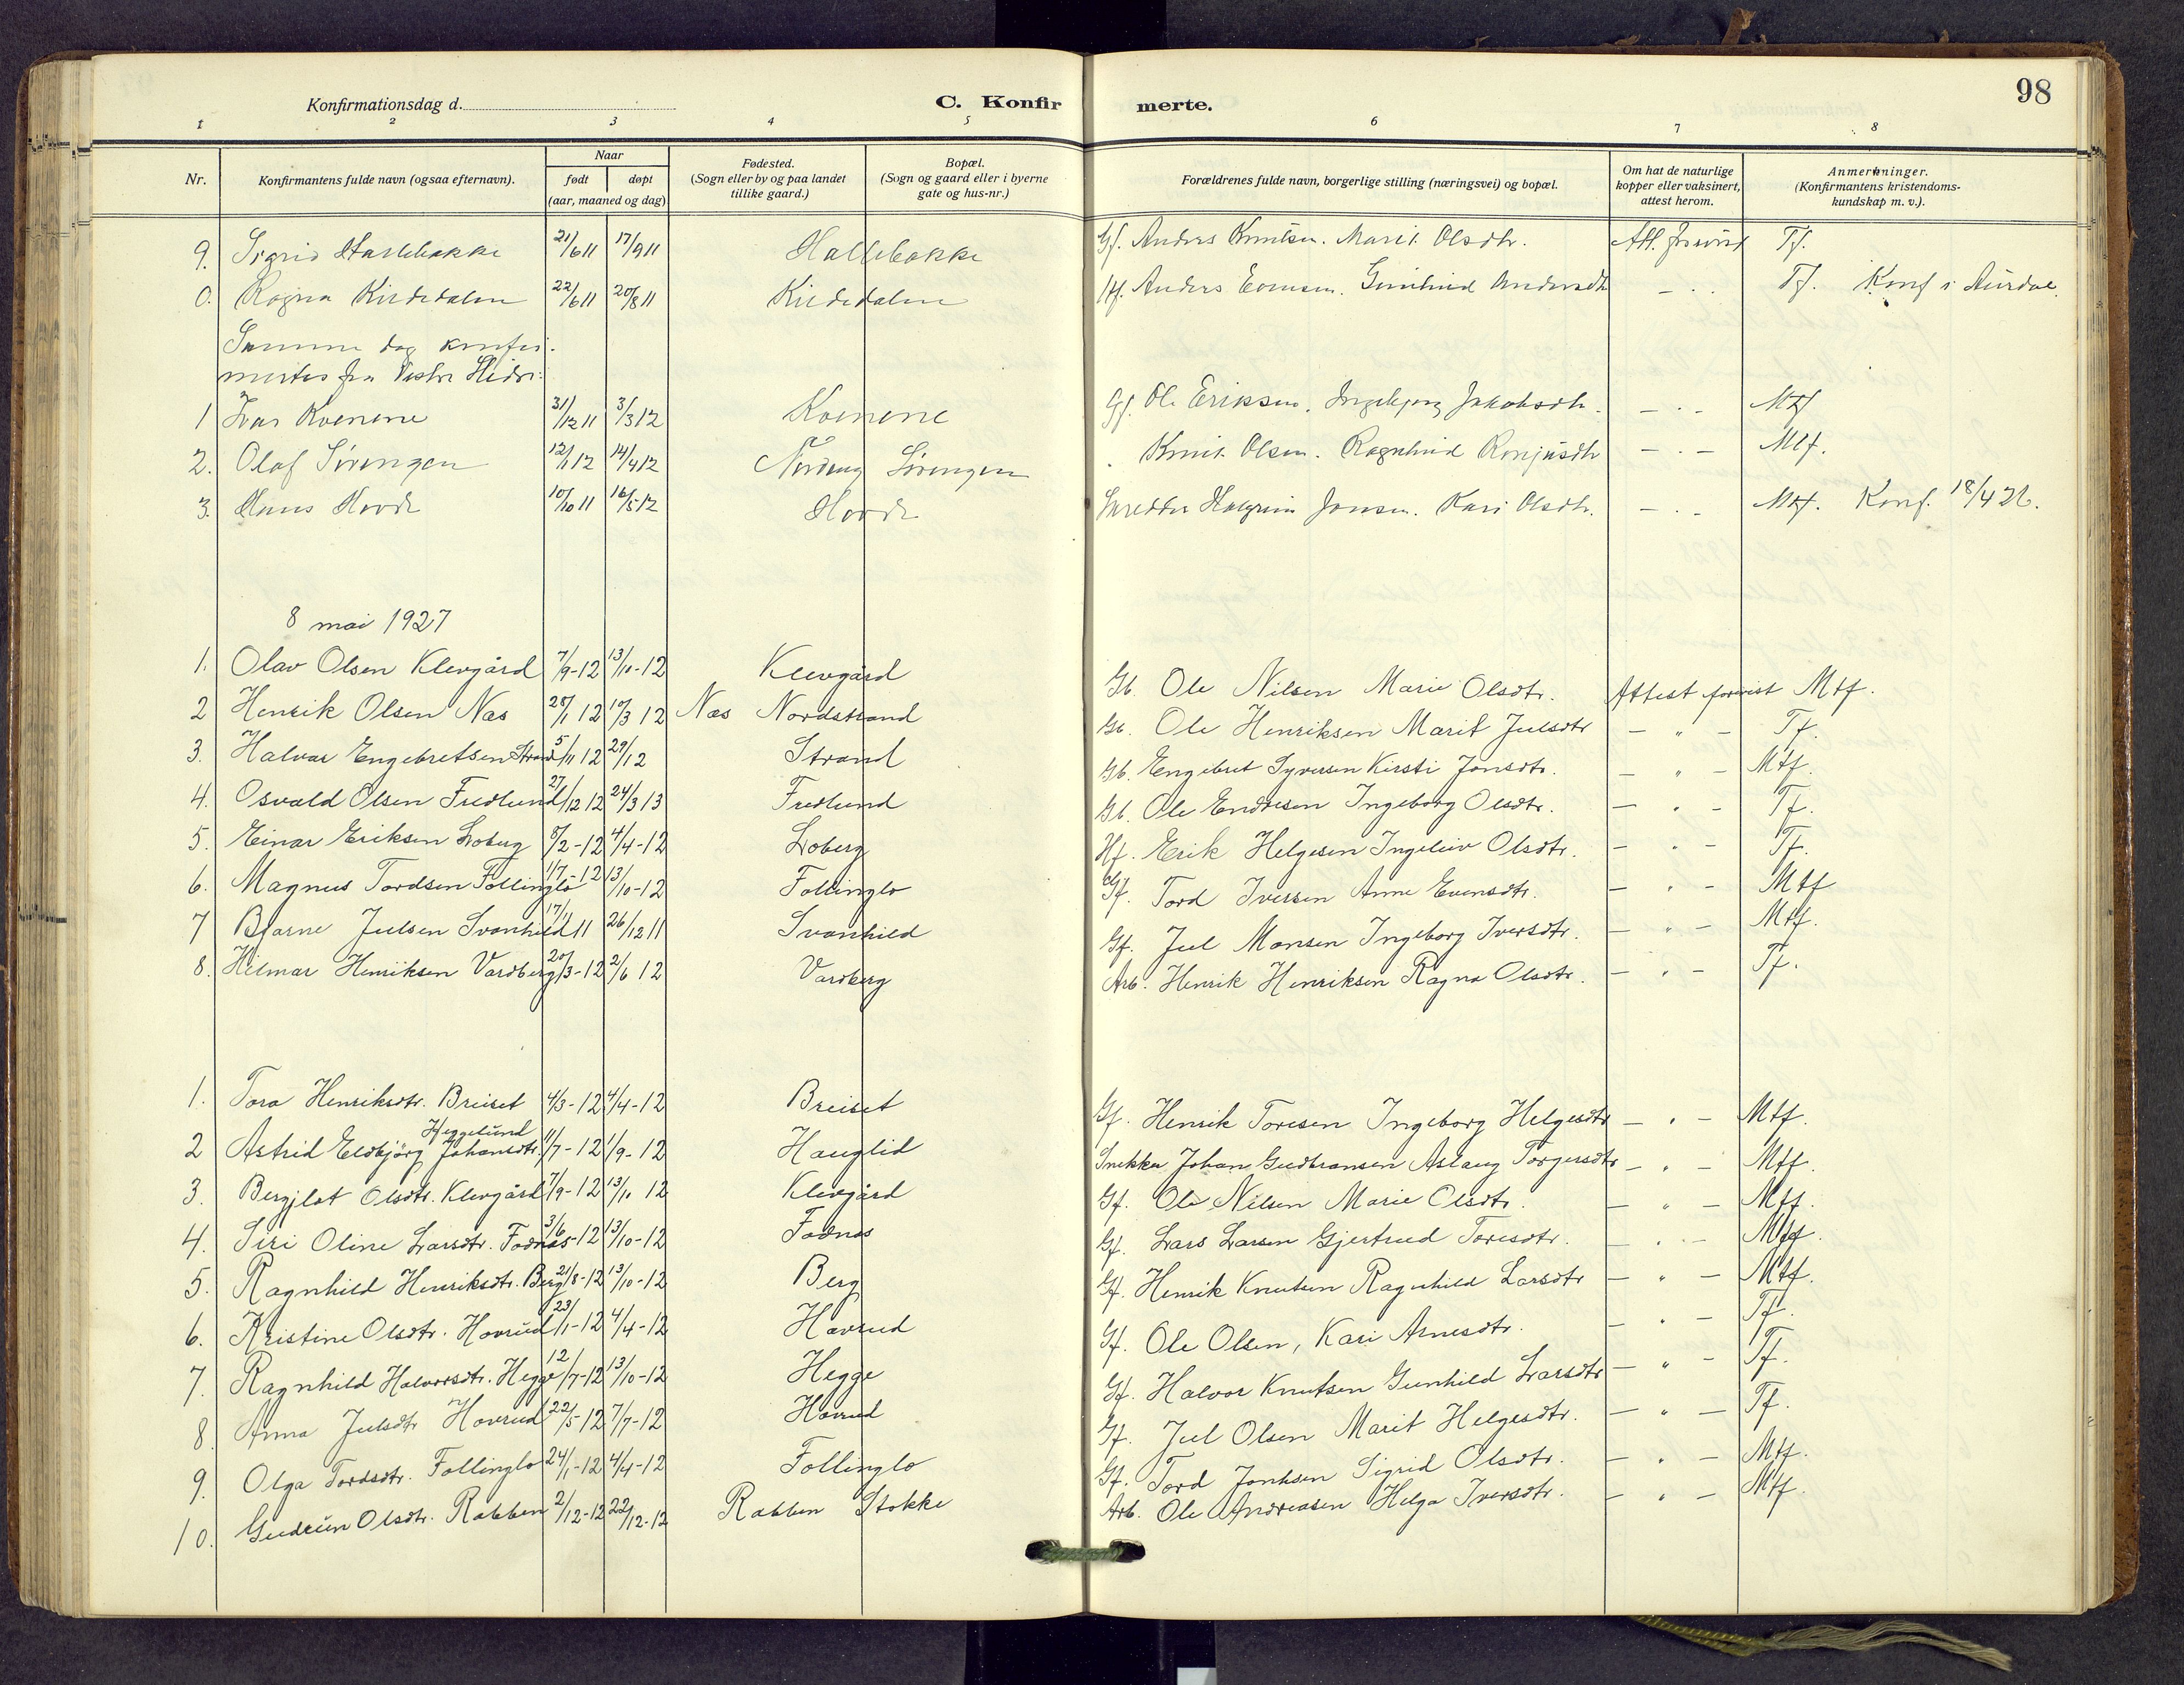 Konfirmationsdag d. C. Konfir merte. 98
1 2 3 4 5 6 7 8
Nr. Konfirmantens fulde navn (ogsaa efternavn). Naar født døpt (aar, maaned og dag) Fødested. (Sogn eller by og paa landet tillike gaard.) Bopæl. (Sogn og gaard eller i byerne gate og hus-nr.) Forældrenes fulde navn, borgerlige stilling (næringsvei) og bopæl. Om hat de naturlige kopper eller vaksinert, attest herom. Anmerkninger. (Konfirmantens kristendoms-kundskap m. v.).
9. Sigrid Hallebakke 21/6 11 17/9 11 Hallebakke Gf. Anders Knutsen. Marit Olsdtr. Tf.
0. Ragna Kirdedalen 22/6 11 20/8 11 Kirdedalen Hf. Anders Gunhild Andersdtr - . . Tf. Konf i Aurdal.
Samme dag konfir-
mertes fra Vestre Slidre:
1 Ivar Kvenene 31/12 11 31/3 12 Kvenene Gf. Ole Eriksen. Ingebjørg Jakobsdtr. - . - Mtf
2. Olaf Sørengen 12/1 12 14/4 12 Nordeng Sørengen Knut Olsen. Ragnhild - . - Mtf.
3. Hans Hovde 10/10 11 16/5 12 Hovde Skredder Halgrim Jonsen. Kari Olsdtr. - . - Mtf. Konf. 18/4 26.
8 mai 1927
1. Olav Olsen Klevgård 7/9-12 13/10-12 Klevgård Gb. Ole Nilsen Marie Olsdtr. Attest forevist Mtf.
2 Henrik Olsen Næs 28/1 12 10/3 12 Næs Nordstrand Gb. Ole Henriksen Marit Julsdtr - " - Tf.
3. Halvar Engebretsen Strand 5/11 12 29/12 Strand Gb. Engebret Syversen Kirsti Jonsdtr. - " - Mtf.
4. Osvald Olsen Fredlund 27/12 12 24/3 13 Fredlund Gb. Ole Endresen Ingeborg Olsdtr. - " - Tf.
5. Einar Eriksen Loberg 8/2-12 4/4-12 Loberg Hf. Erik Helgesen Ingeleiv Olsdtr. - " - Tf.
6. Magnus Tordsen Follinglo 1/7-12 13/10-12 Follinglo Gf. Tord Iversen Anne Evensdtr. - " - Mtf
7 Bjarne Julsen Svanhild 17/11 11 26/12 11 Svanhild Gf. Jul Monsen Ingeborg Iversdtr. - " - Mtf.
8. Hilmar Henriksen Vardberg 20/3-12 2/6 12 Vardberg Arb. Henrik Henriksen Ragna Olsdtr. - " - Tf.
1. Tora Henriksdtr. Breiset 4/3-12 4/4-12 Breiset Gf. Henrik Toresen Ingeborg Helgesdtr - " - Mtf.
Heggelund
2 Astrid Eldbjörg Johansdtr. 11/7-12 1/9-12 Hauglid Snekker Johan Gudbransen Aslaug Torgersdtr - " - Mtf.
3. Bergjlot Olsdtr. Klevgård 7/9-12 13/10 12 Klevgård Gf. Ole Nilsen Marie Olsdtr. - " - Mtf.
4. Siri Oline Larsdtr. Fodnæs 3/6-12 13/10-12 Fodnæs Gf. Lars Larsen Gjertrud Toresdtr. - " - Mtf.
5. Ragnhild Henriksdtr. Berg 21/8-12 13/10-12 Berg Gf. Henrik Knutsen Ragnhild Larsdtr - " - Mtf.
6. Kristine Olsdtr. Hovrud 23/1-12 4/4-12 Hovrud Gf. Ole Olsen, Kari Arnesdtr. - " - Tf.
7. Ragnhild Halvorsdtr. Hegge 12/7-12 13/10-12 Hegge Gf. Halvor Knutsen Gunhild Larsdtr - " - Tf.
8. Anna Julsdtr Hovrud 22/5-12 7/7-12 Hovrud Gf. Jul Olsen Marit Helgesdtr. - " - Tf.
9. Olga Tordsdtr. Follinglo 24/1-12 4/4-12 Follinglo Gf. Tord Jonhsen Sigrid Olsdtr. - " - Mtf.
10. Gudrun Olsdtr. Rabben 2/12-12 22/12-12 Rabben Stokke Arb. Ole Andreasen Helga Iversdtr. - " - Mtf.